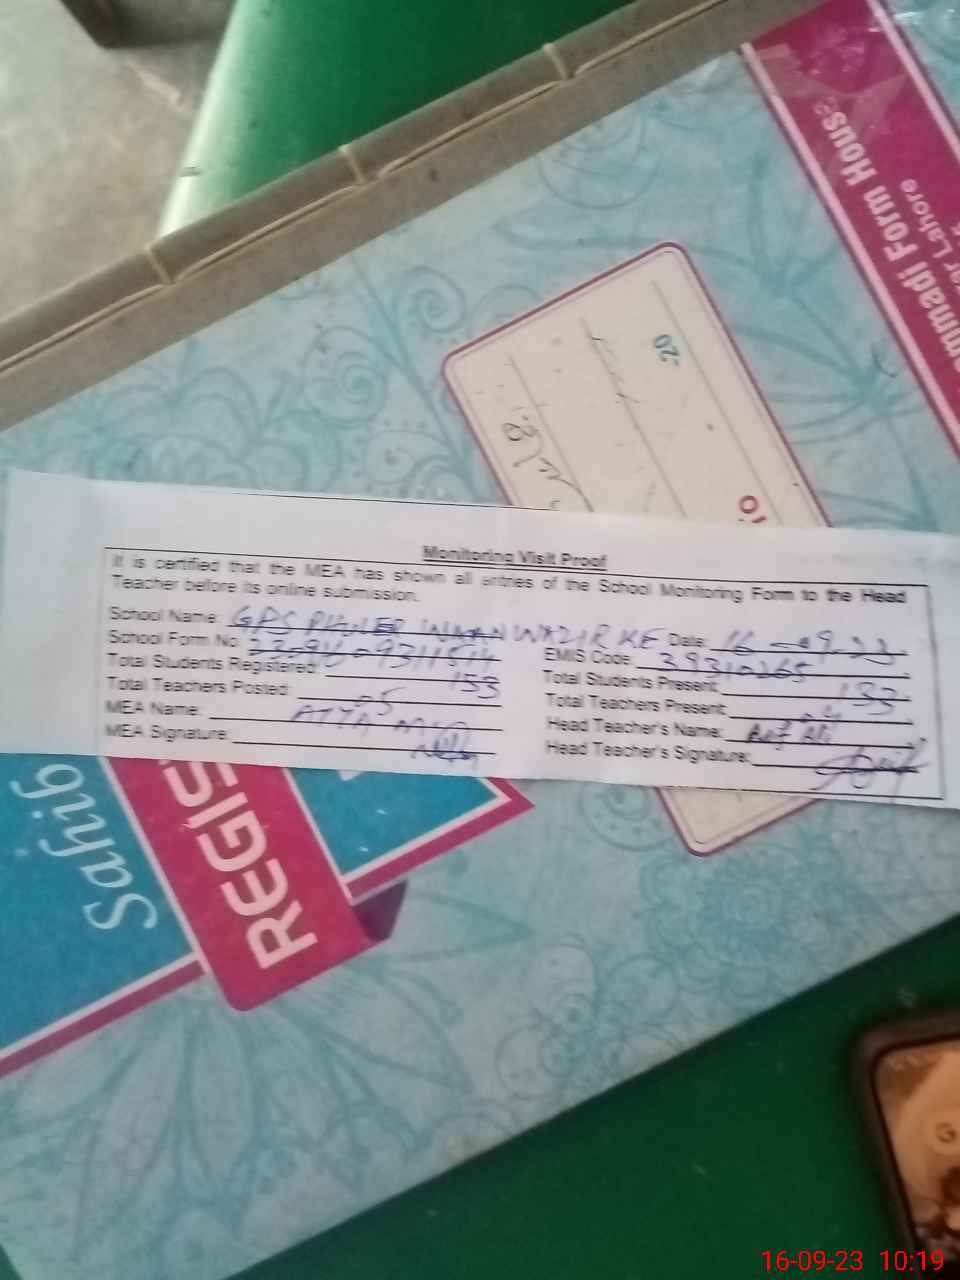 ammadi Form House
er Lahore
20
Monitoring Visit Proof
It is certified that the MEA has shown all entries of the School Monitoring Form to the Head
Teacher before its online submission.
School Name: GPS WAZIR KE Date: 16-09-23
School Form No: EMIS Code: 39310265
Total Students Registered: 153 Total Students Present: 133
Total Teachers Posted: 05 Total Teachers Present: 04
MEA Name: ATTA Head Teacher's Name: Ali
MEA Signature: Head Teacher's Signature:
Sahib
REGIS
16-09-23 10:19